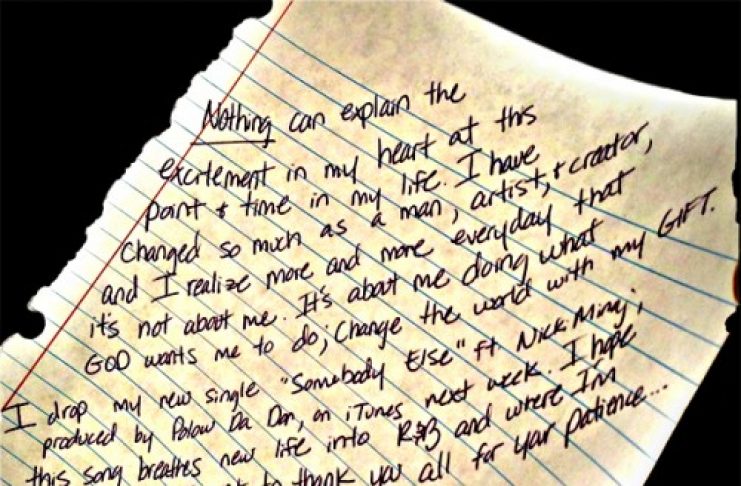 Nothing can explain the
excitement in my heart at this
point & time in my life. I have
changed so much as a man, artist, & creator,
and I realize more and more everyday that
it's not about me. It's about me doing what
GOD wants me to do; Change the world with my GIFT.
I drop my new single "Somebody Else" ft Nick Minaj;
produced by Polow Da Don, on iTunes next week. I hope
this song breathes new life into R&B and where Im
to thank you all for your patience...